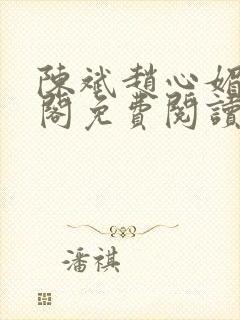 陳斌趙心媚
閣免費閱讀
潘祺